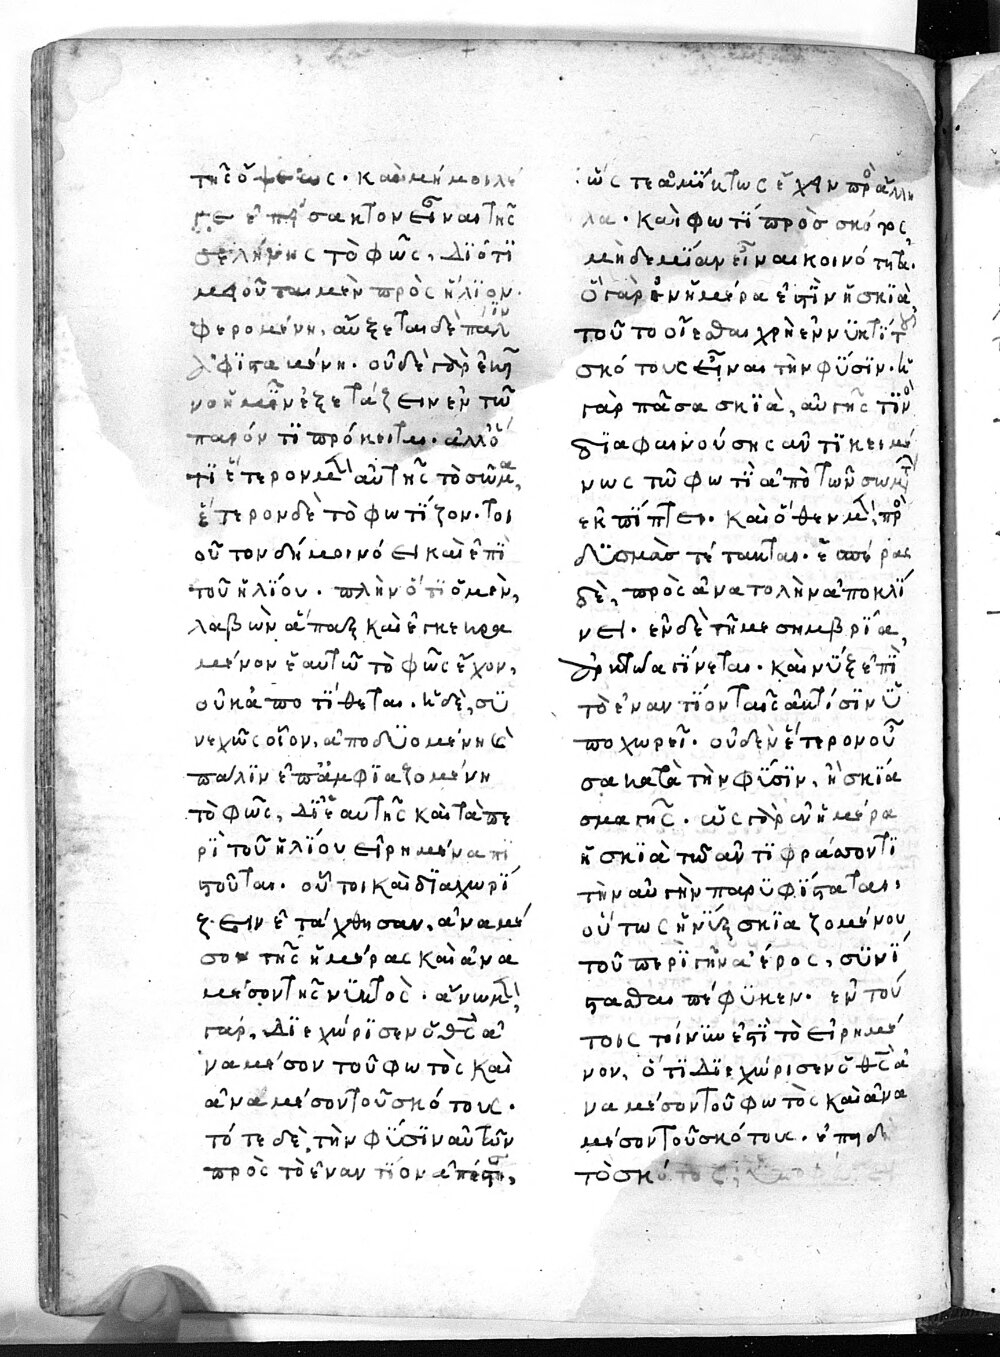 τῆς ὄψεως· καὶ μή μοι λέ
γε ἐπείσακτον εἶναι τῆς
σελήνης τὸ φῶς, διότι
μειοῦται μὲν πρὸς ἥλιον
φερομένη, αὔξεται δὲ πάλιν
ἀφισταμένη· οὐδὲ γὰρ ἐκεῖ
νο ἡμῖν ἐξετάζειν ἐν τῶ
παρόντι πρόκειται· ἀλλ' ὅ
τι ἕτερον μὲν αὐτῆς τὸ σῶμα,
ἕτερον δὲ τὸ φωτίζον· τοι
οῦτον δή μοι νόει καὶ ἐπὶ
τοῦ ἡλίου· πλὴν ὅτι ὁ μὲν,
λαβὼν ἅπαξ καὶ ἐγκεκρα
μένον ἑαυτῶ τὸ φῶς ἔχον,
οὐκ ἀποτίθεται· ἡ δὲ, συ
νεχῶς οἷον, ἀποδυομένη καὶ
πάλιν ἐπαμφιαζομένη
τὸ φῶς, δι' ἑαυτῆς καὶ τὰ πε
ρὶ τοῦ ἡλίου εἰρημένα πι
στοῦται· οὗτοι καὶ διαχωρί
ζειν ἐτάχθησαν, ἀναμέ
σον τῆς ἡμέρας καὶ ἀνα
μέσον τῆς νυκτὸς· ἄνω μὲν
γάρ, διεχώρισεν ὁ θς ἀ
ναμέσον τοῦ φωτὸς καὶ
ἀναμέσον τοῦ σκότους·
τότε δὲ, τὴν φύσιν αὐτῶν
πρὸς τὸ ἐναντίον ἀπέστησεν,
ὥς τε ἀμίκτως ἔχειν πρὸς ἄλλη
λα· καὶ φωτὶ πρὸς σκότος
μηδεμίαν εἶναι κοινότητα·
ὃ γὰρ ἐν ἡμέρα ἐστὶν ἡ σκιὰ
τοῦτο οἴεσθαι χρὴ ἐν νυκτὶ τοῦ
σκότους εἶναι τὴν φύσιν· εἰ
γὰρ πᾶσα σκιὰ, αὐγῆς τινὸς
διαφαινούσης ἀντικειμέ
νως τῶ φωτὶ ἀπὸ τῶν σωμάτων
ἐκπίπτει· καὶ ἕωθεν μὲν, πρὸς
δυσμὰς τέταται· ἑσπέρας
δὲ, πρὸς ἀνατολὴν ἀποκλί
νει· ἐν δὲ τῆ μεσημβρία,
ἀρκτώα γίνεται· καὶ νὺξ ἐπὶ
τὸ ἐναντίον ταῖς ἀκτίσιν ὑ
ποχωρεῖ· οὐδὲν ἕτερον οὖ
σα κατὰ τὴν φύσιν, ἢ σκία
σμα γῆς· ὡς γὰρ ἐν ἡμέρα
ἡ σκιὰ τῶ ἀντιφράσσοντι
τὴν αὐγὴν παρυφίσταται,
οὕτως ἡ νὺξ σκιαζομένου
τοῦ περὶ γῆν ἀέρος, συνί
στασθαι πέφυκεν· ἐν τού
τοις τοίνυν ἐστὶ τὸ εἰρημέ
νον, ὅτι διεχώρισεν ὁ θς ἀ
ναμέσον τοῦ φωτὸς καὶ ἀνα
μέσον τοῦ σκότους· ἐπειδὴ
τὸ σκότος